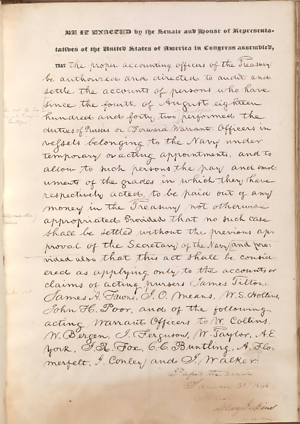 BE IT ENACTED by the Senate and House of Representa-
tatives of the United States of America in Congress assembled,
THAT the proper accounting officers of the Treasury
be authorized and directed to audit and
settle the accounts of persons who have
since the fourth of August eighteen
hundred and forty two, performed the
duties of Pursers or Forward Warrant Officers in
vessels belonging to the Navy under
temporary or acting appointments, and to
allow to such persons the pay and emol-
uments of the grades in which they have
respectively acted, to be paid out of any
money in the Treasury not otherwise
appropriated Provided that no such case
shall be settled without the previous ap-
proval of the Secretary of the Navy and pro-
vided also that this act shall be consid-
ered as applying only to the accounts or
claims of acting pursers James Tilton
James A. J. O. Means, W. S. Hollins
John H. Poor, and of the following
acting Warrant Officers to W. Collins
W. Bergen, J. Ferguson, W. Taylor, A. E.
York, J. R. Fox, C. C. Buntling, A. Flo-
merfelt, J. Conley and S. Walker.